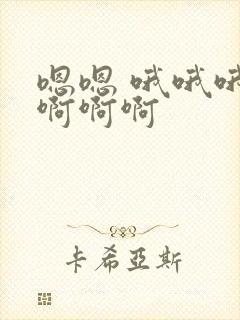 嗯嗯 哦哦哦
啊啊啊
卡希亞斯